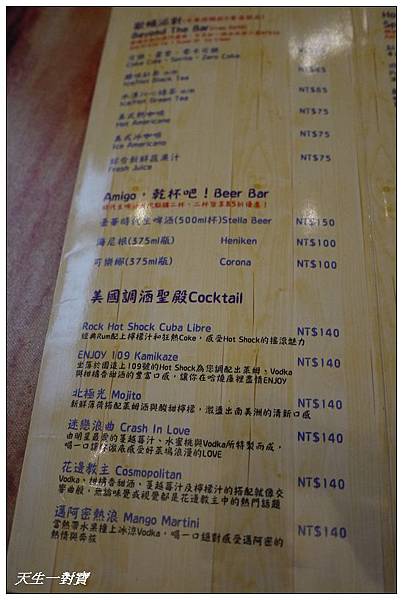 Beyond The Bar
可樂、雪碧、零卡可樂
Coke Coke、Sprite、Zero Coke
Ice/Hot Black Tea NT$65
Ice/Hot Green Tea NT$75
美式熱咖啡 NT$75
Hot Americano
美式冰咖啡 NT$75
Ice Americano
綜合新鮮蔬果汁 NT$75
Fresh Juice
Amigo，乾杯吧！Beer Bar
臺夢時代生啤酒(500ml杯)Stella Beer NT$150
海尼根(375ml瓶) Heniken NT$100
可樂娜(375ml瓶) Corona NT$100
美國調酒聖殿Cocktail
Rock Hot Shock Cuba Libre NT$140
經典Rum配上檸檬汁和狂熱Coke，感受Hot Shock的搖滾魅力
ENJOY 109 Kamikaze NT$140
坐落於園達上109號的Hot Shock為您調配出萊姆、Vodka
與柑橘香甜酒的豐富口感，讓你在哈燒庫裡盡情ENJOY
北極光 Mojito NT$140
新鮮薄荷搭配萊姆酒與酸甜檸檬，激盪出南美洲的清新口感
迷戀浪曲 Crash In LOVE NT$140
由明星最愛的蔓越莓汁、水蜜桃與Vodka所特製而成，
喝一口讓你徹底感受好萊塢浪漫的LOVE
花邊教主 Cosmopolitan NT$140
Vodka、柑橘香甜酒、蔓越莓汁及檸檬汁的搭配就像交
響曲般，無論味覺或視覺都是花邊教主中的熱門話題
邁阿密熱浪 Mango Martini NT$140
當熱帶水果撞上冰涼Vodka，喝一口絕對感受邁阿密的
熱情與奔放
天生一對寶